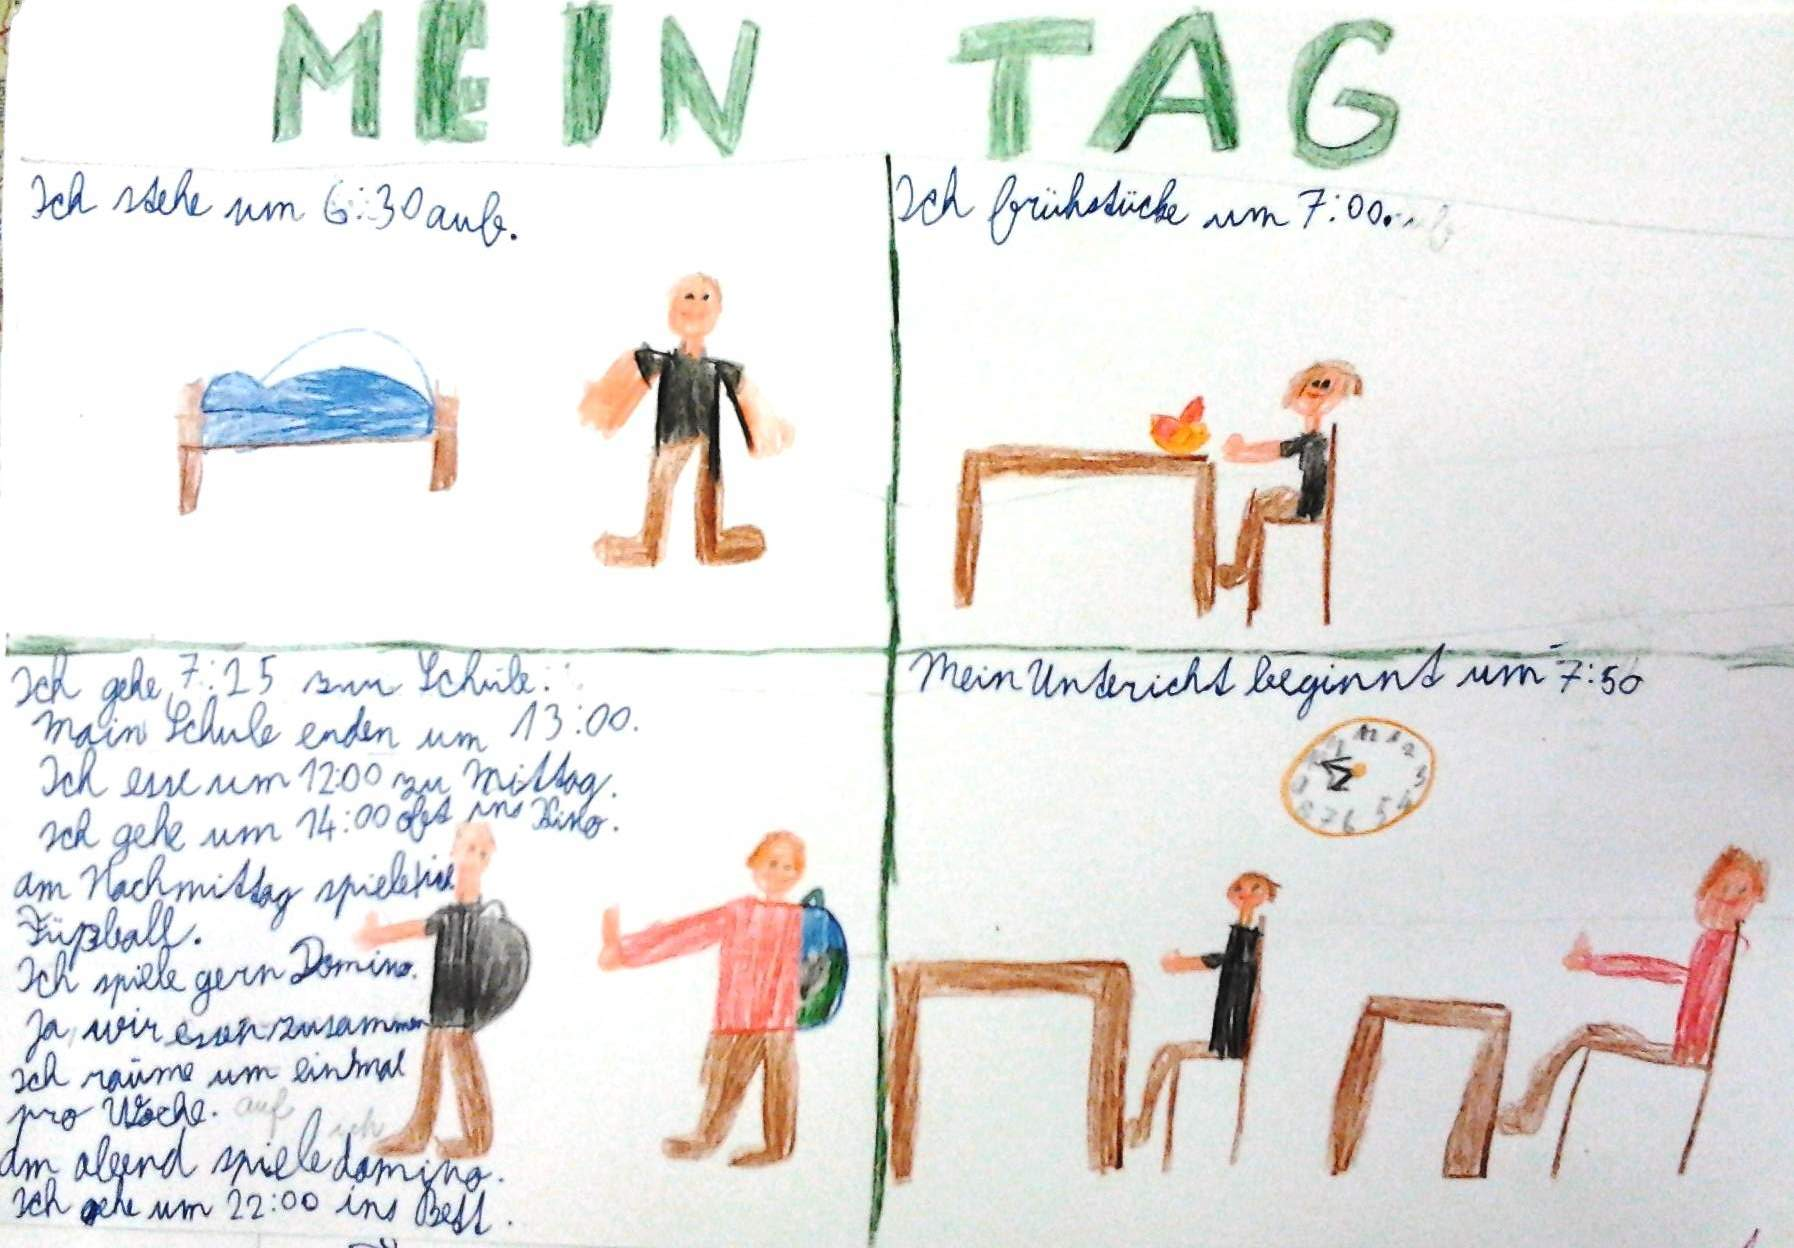 MEIN TAG
Ich stehe um 6:30 auf.
Ich frühstücke um 7:00.
Ich gehe 7:25 zur Schule.
Main Schule enden um 13:00.
Ich esse um 12:00 zu Mittag.
Ich gehe um 14:00 oft ins Kino.
am Nachmittag spiele ich
Füßball.
Ich spiele gern Domino.
Ja, wir essen zusammen
Ich räume um einmal
pro Woche. auf
am abend spiele ich domino.
Ich gehe um 22:00 ins Bett.
Mein Untericht beginnt um 7:50
11 12 1 2
3
4
5
6
7
8